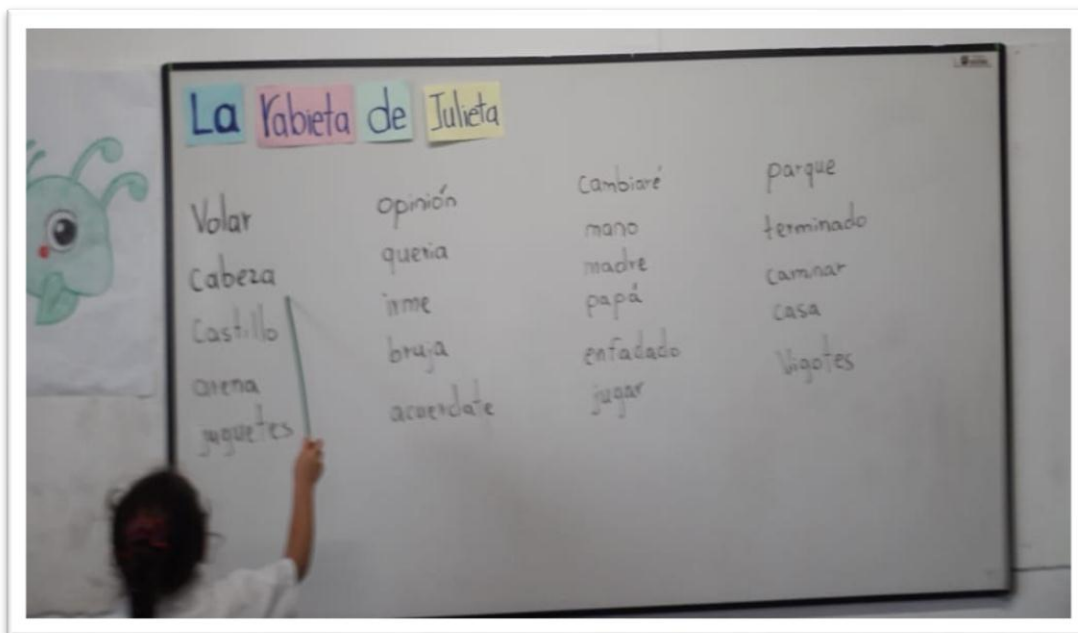 La rabieta de Julieta
Volar
Cabeza
Castillo
arena
juguetes
opinión
queria
irme
bruja
acuerdate
cambiaré
mano
madre
papá
enfadado
jugar
parque
terminado
caminar
casa
Vigotes